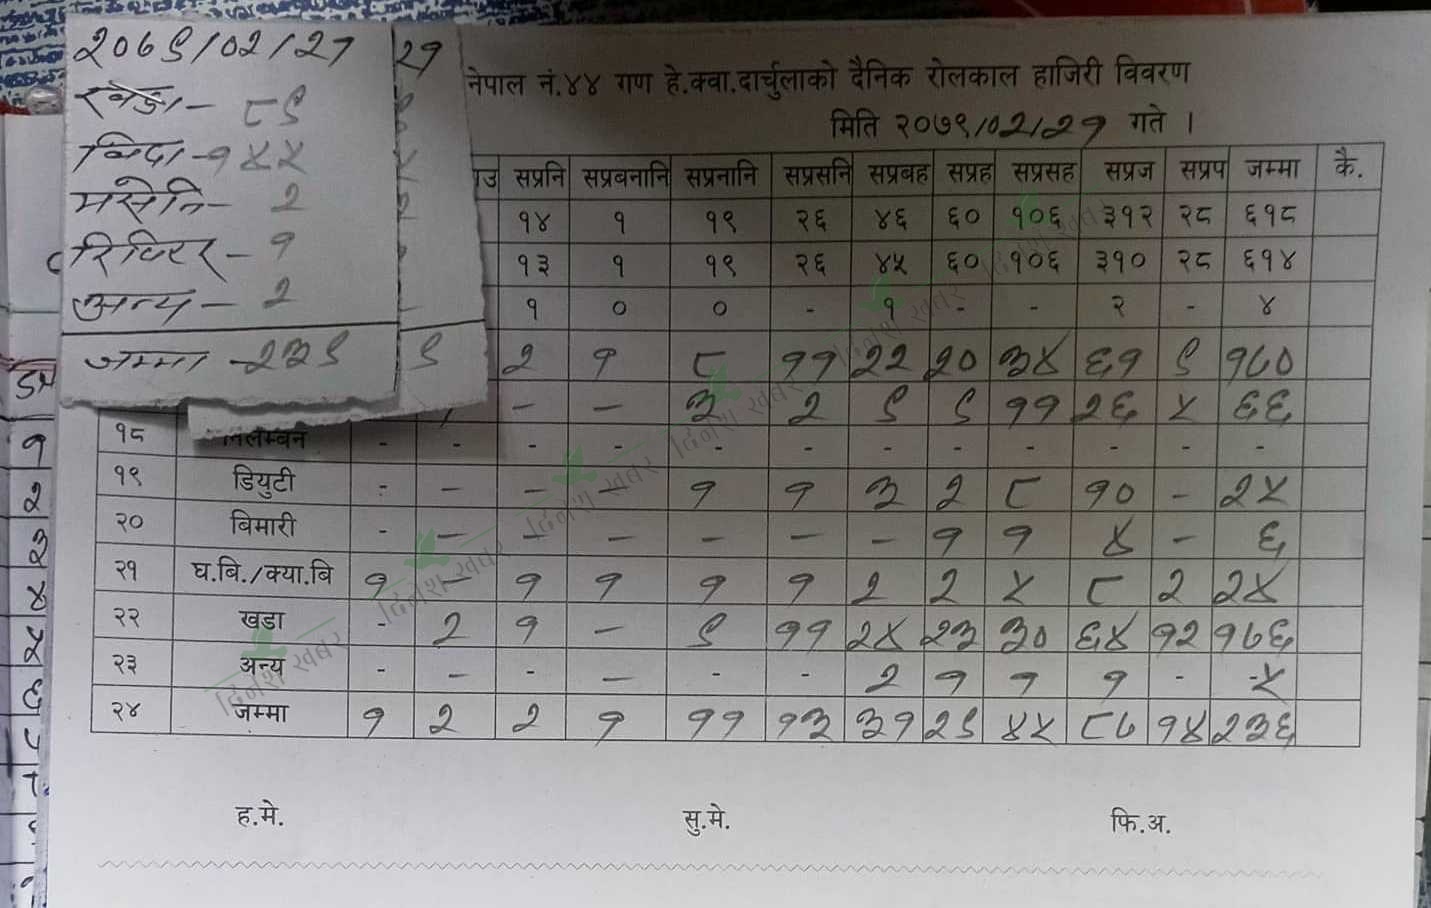 २०७९/०२/२१
खडा - ८९
विदा - १४५
मसेनि - २
रिभिर - १
अन्य - २
जम्मा - २३९
२१
९
नेपाल नं.४४ गण हे.क्वा.दार्चुलाको दैनिक रोलकाल हाजिरी विवरण
मिति २०७९/०२/२१ गते ।
सप्रनि सप्रबनानि सप्रनानि सप्रसनि सप्रबह सप्रह सप्रसह सप्रज सप्रप जम्मा कै.
१४ १ १९ २६ ४६ ६० १०६ ३१२ २८ ६१८
१३ १ १९ २६ ४५ ६० १०६ ३१० २८ ६१४
१ ० ० - १ - - २ - ४
२ १ ८ ११ २२ २० ३४ ६१ ९ १७०
- - ३ २ ९ ९ ११ २६ ५ ६६
१८ निलम्बन - - - - - - - - - - - -
१९ डियुटी - - - - १ १ ३ २ ८ १० - २५
२० बिमारी - - - - - - - १ १ ४ - ६
२१ घ.बि./क्या.बि १ - १ १ १ १ २ २ ५ ८ २ २४
२२ खडा - २ १ - ९ ११ २४ २३ ३० ६४ १२ १७६
२३ अन्य - - - - - - २ १ १ १ - ५
२४ जम्मा १ २ २ १ ११ १३ ३१ २९ ४५ ८७ १४ २३६
ह.मे. सु.मे. फि.अ.
दिनेश खबर